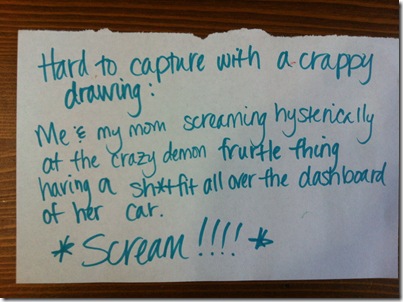 Hard to capture with a crappy
drawing:
Me & my mom screaming hysterically
at the crazy demon frurtle thing
having a sh*tfit all over the dashboard
of her car.
*Scream!!!!*